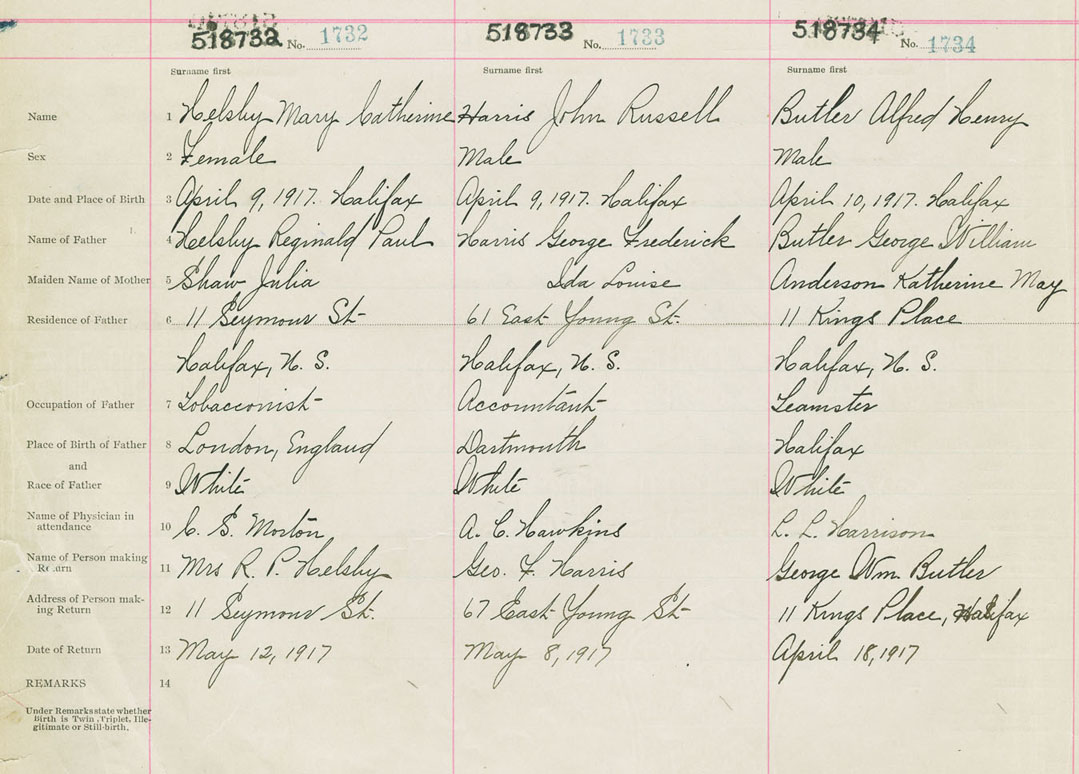 518732 No. 1732 518733 No. 1733 518734 No. 1734
Surname first Surname first Surname first
Name 1 Helsby Mary Catherine Harris John Russell Butler Alfred Henry
Sex 2 Female Male Male
Date and Place of Birth 3 April 9, 1917. Halifax April 9, 1917. Halifax April 10, 1917. Halifax
Name of Father 4 Helsby Reginald Paul Harris George Frederick Butler George William
Maiden Name of Mother 5 Shaw Julia Ida Louise Anderson Katherine May
Residence of Father 6 11 Seymour St. 61 East Young St. 11 Kings Place
Halifax, N. S. Halifax, N. S. Halifax, N. S.
Occupation of Father 7 Tobacconist Accountant Teamster
Place of Birth of Father 8 London, England Dartmouth Halifax
and
Race of Father 9 White White White
Name of Physician in
attendance 10 C. S. Morton A. C. Hawkins L. L. Harrison
Name of Person making
Return 11 Mrs R. P. Helsby Geo. F. Harris George Wm. Butler
Address of Person mak-
ing Return 12 11 Seymour St. 67 East Young St. 11 Kings Place, Halifax
Date of Return 13 May 12, 1917 May 8, 1917 April 18, 1917
REMARKS 14
Under Remarks state whether
Birth is Twin, Triplet, Ille-
gitimate or Still-birth.